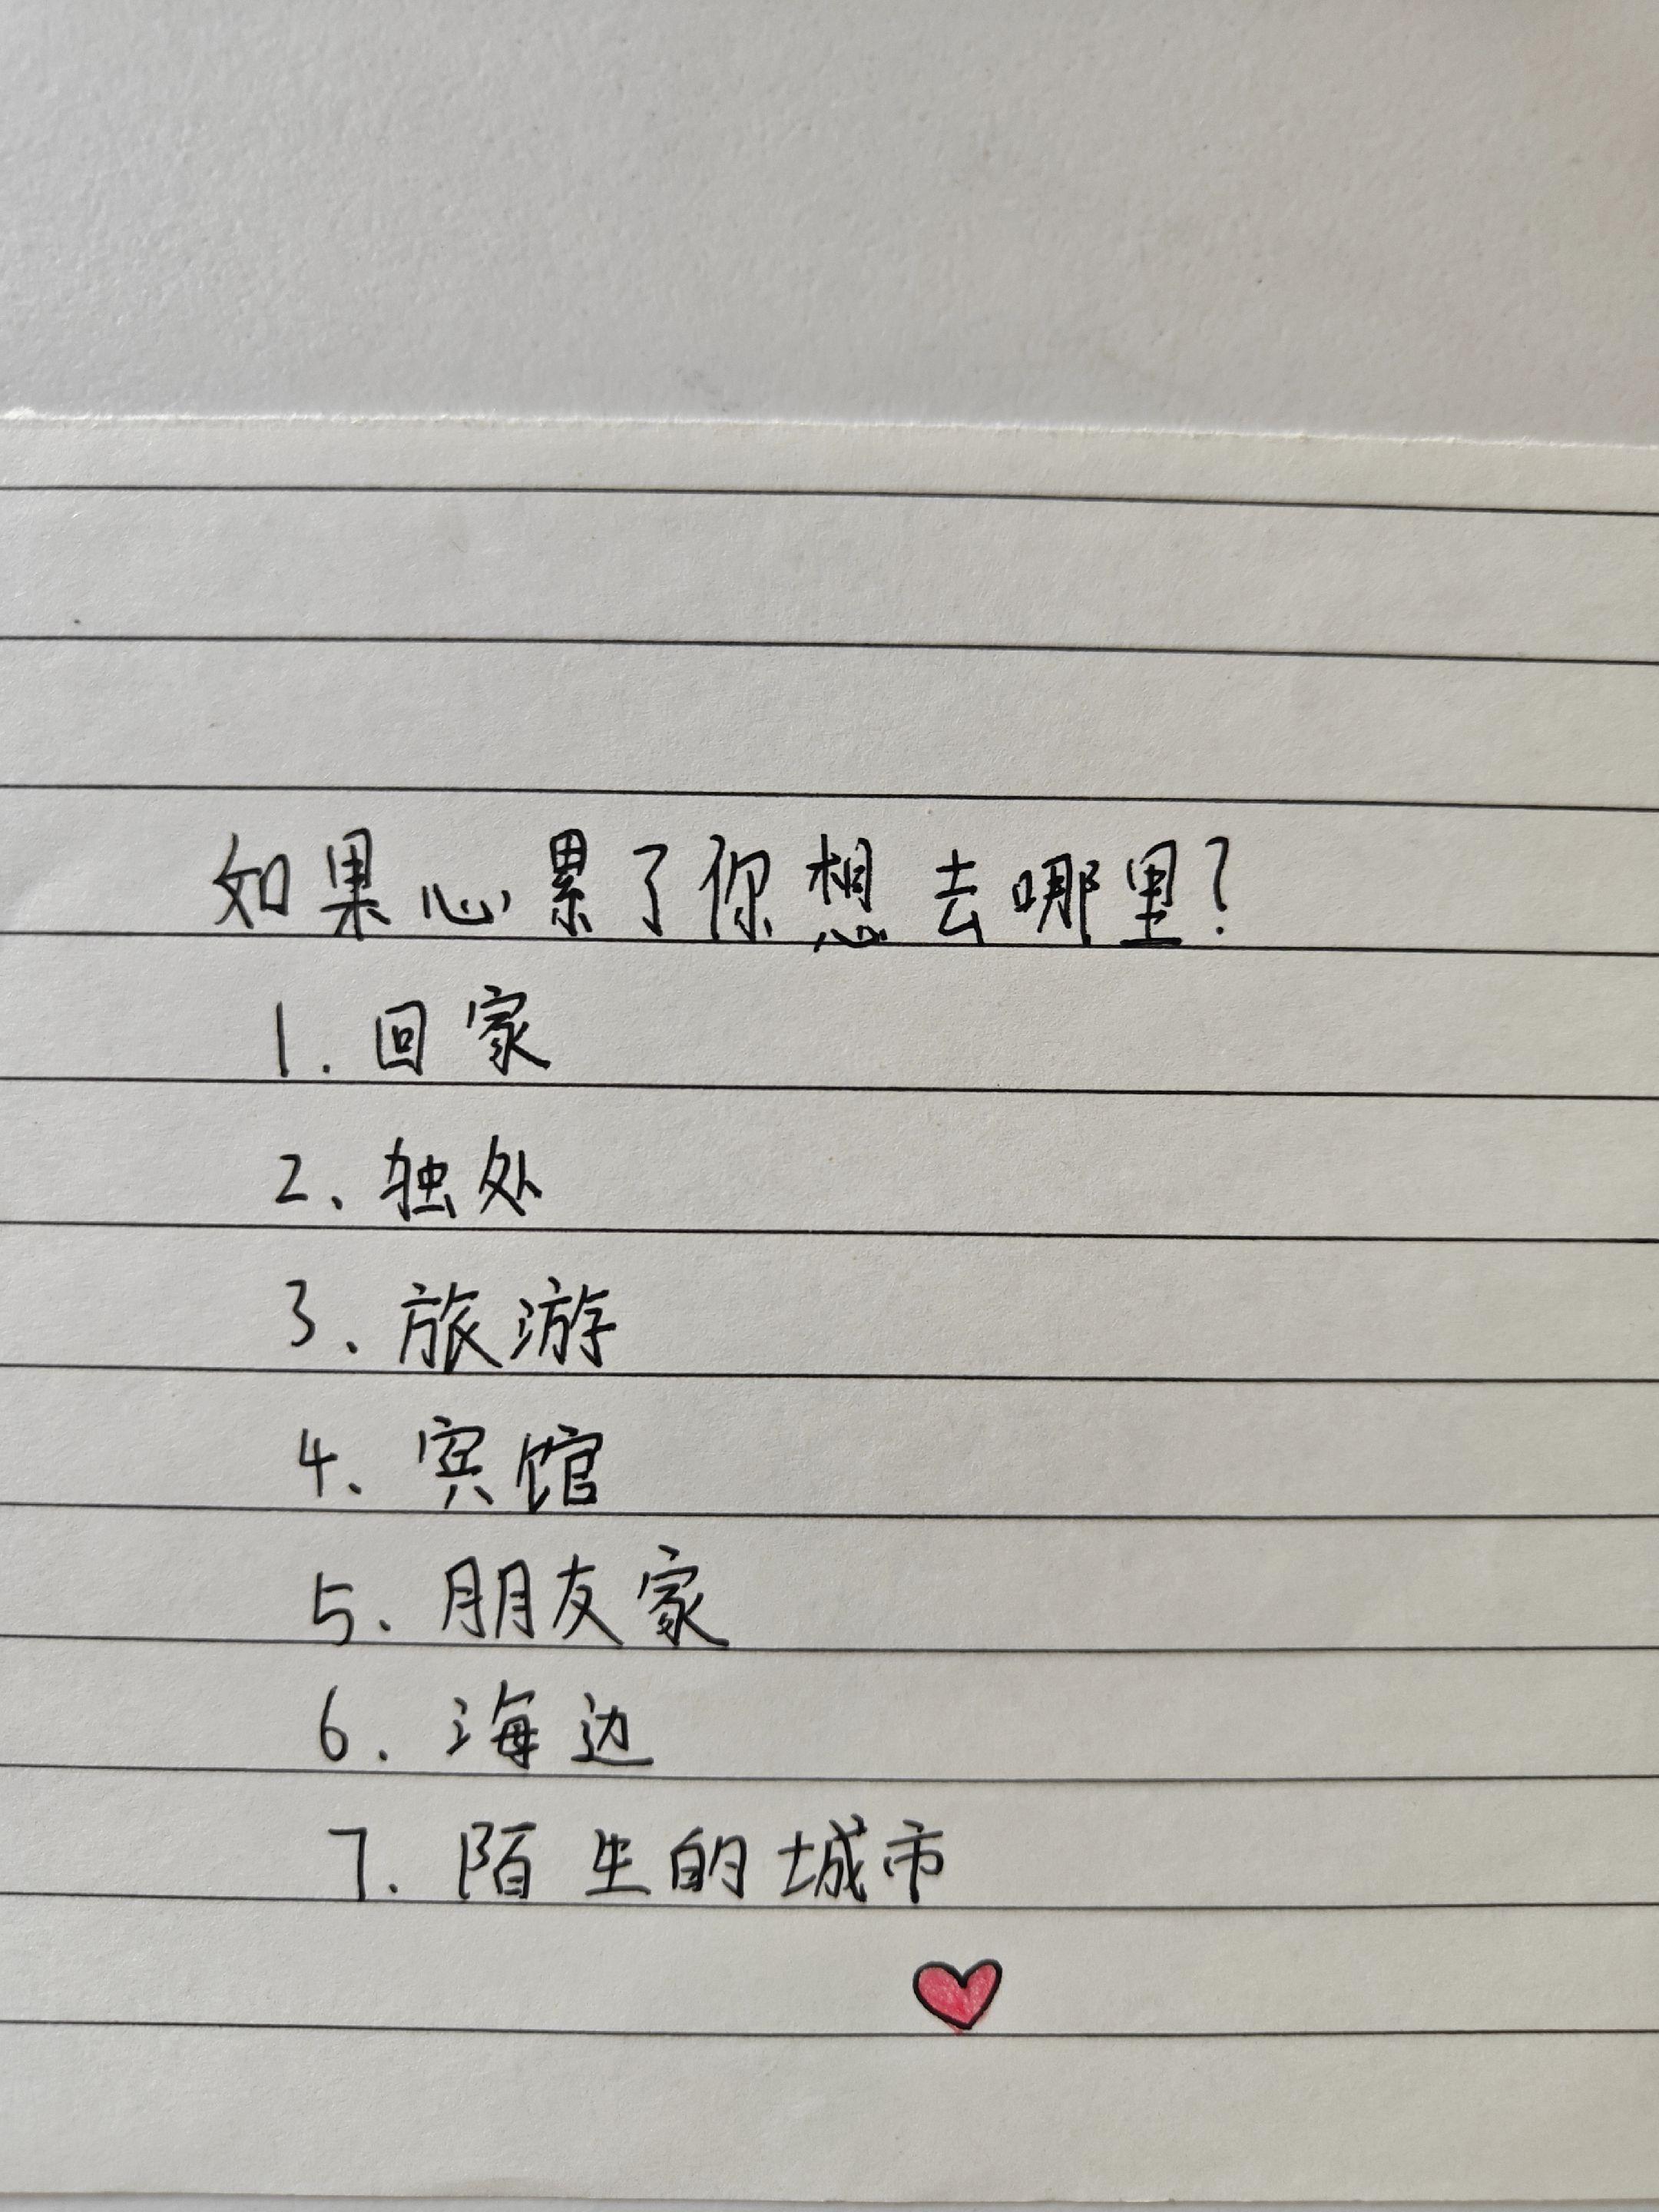 如果心累了你想去哪里?
1. 回家
2、独处
3、旅游
4、宾馆
5. 朋友家
6. 海边
7. 陌生的城市